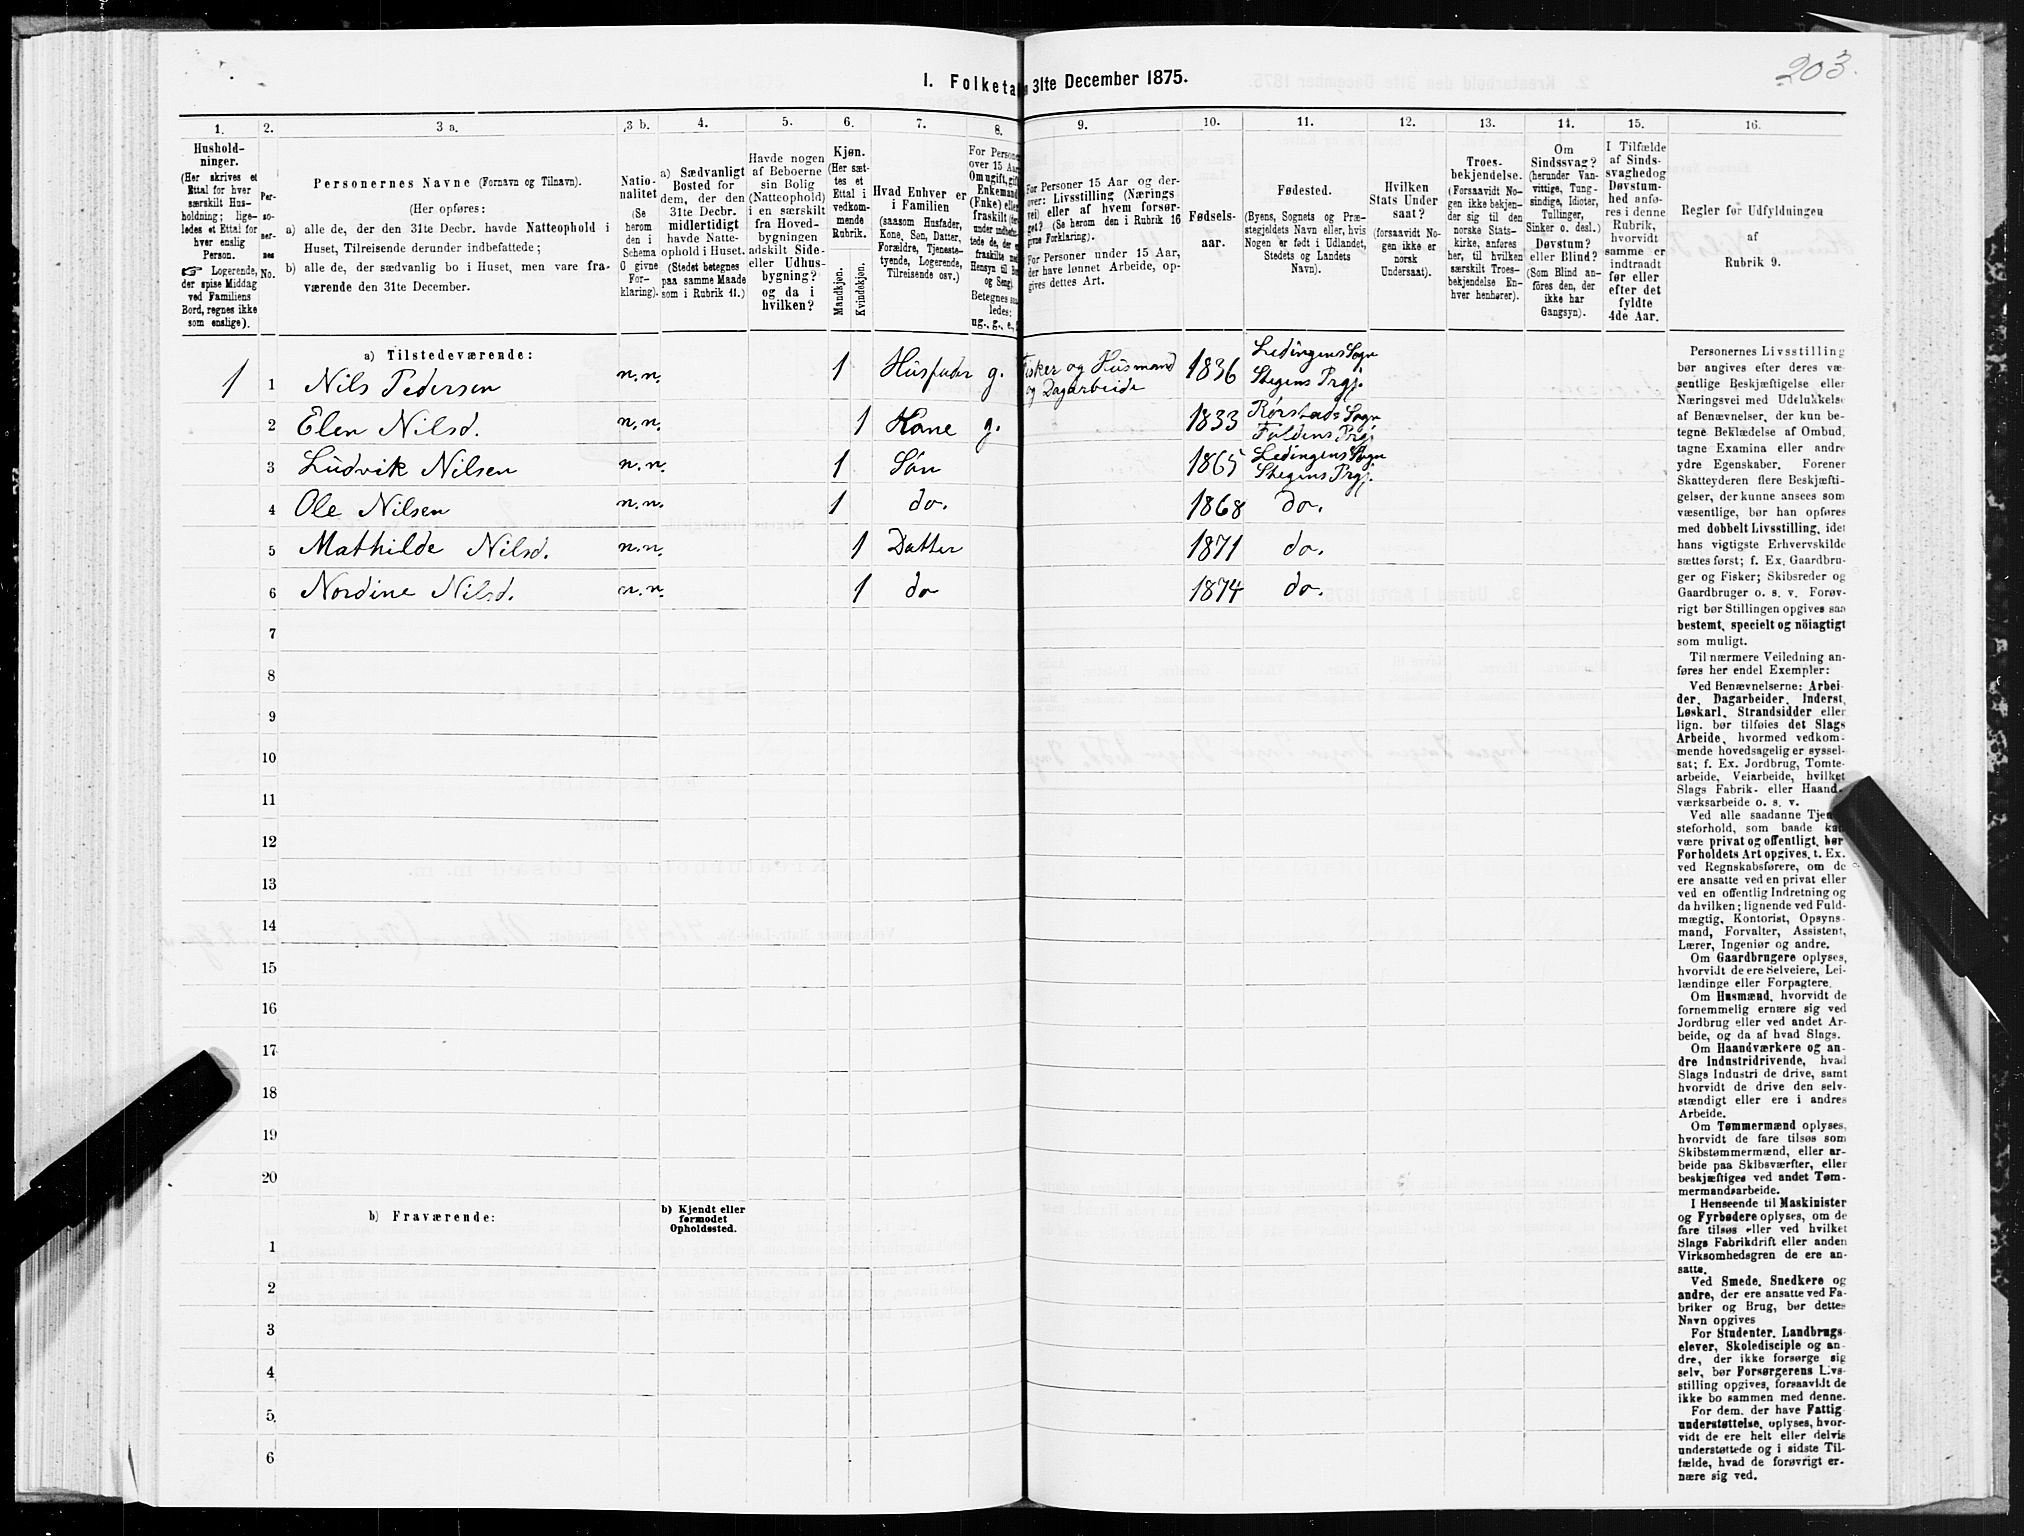 203.
1. Folketa 31te December 1875.
1. 2. 3 a. 3 b. 4. 5. 6. 7. 8. 9. 10. 11. 12. 13. 14. 15. 16.
Hushold-
ninger.
(Her skrives et
Ettal for hver
særskilt Hus-
holdning; lige-
ledes et Ettal for
hver enslig
Person.
☞ Logerende,
der spise Middag
ved Familiens
Bord, regnes ikke
som enslige).
Per-
so-
ner-
nes
No.
Personernes Navne (Fornavn og Tilnavn).
(Her opføres:
a) alle de, der den 31te Decbr. havde Natteophold i
Huset, Tilreisende derunder indbefattede;
b) alle de, der sædvanlig bo i Huset, men vare fra-
værende den 31te December.
Natio-
nalitet
(Se
herom
den i
Schema
O givne
For-
klaring).
a) Sædvanligt
Bosted for
dem, der den
31te Decbr.
midlertidigt
havde Natte-
ophold i Huset.
(Stedet betegnes
paa samme Maade
som i Rubrik 11.)
Havde nogen
af Beboerne
sin Bolig
(Natteophold)
i en særskilt
fra Hoved-
bygningen
adskilt Side-
eller Udhus-
bygning?
og da i
hvilken?
Kjøn.
(Her sæt-
tes et
Ettal i
vedkom-
mende
Rubrik.
Mandkjøn.
Kvindekjøn.
Hvad Enhver er
i Familien
(saasom Husfader,
Kone, Søn, Datter,
Forældre, Tjeneste-
tyende, Logerende,
Tilreisende osv.)
For Persone
over 15 Aar
Om ugift, gift
Enkemand
(Enke) eller
fraskilt
under indbefat-
tede de, der
fraskilte med
Hensyn til Bo
og Seng).
Betegnes saa-
ledes:
ug., g., e.,
For Personer 15 Aar og der-
over: Livsstilling (Nærings
vei) eller af hvem forsør-
get? (Se herom den i Rubrik 16
givne Forklaring).
For Personer under 15 Aar,
der have lønnet Arbeide, op-
gives dettes Art.
Fødsels-
aar.
Fødested.
(Byens, Sognets og Præ-
stegjeldets Navn eller, hvis
Nogen er født i Udlandet,
Stedets og Landets
Navn).
Hvilken
Stats Under
saat?
(forsaavidt No-
gen ikke er
norsk
Undersaat).
Troes-
bekjendelse.
(Forsaavidt No-
gen ikke bekjen-
der sig til den
norske Stats-
kirke, anføres
her, til hvilken
særskilt Troes-
bekjendelse En-
hver henhører).
Om
Sindssvag?
(herunder Van-
vittige, Tung-
sindige, Idioter,
Tullinger,
Sinker o. desl.)
Døvstum?
eller Blind?
(Som Blind an-
føres den, der
ikke har
Gangsyn).
I Tilfælde
af Sinds-
svaghed og
Døvstum-
hed anfø-
res i denne
Rubrik,
hvorvidt
samme er
indtraadt
før eller
efter det
fyldte
4de Aar.
Regler for Udfyldningen
af
Rubrik 9.
a) Tilstedeværende:
1 1 Nils Pedersen n.n. 1 Husfader g. Fisker og Husmand og Dagarbeide 1836 Lødingens Sogn Stegens Prgj.
2 Elen Nilsd. n.n. 1 Kone g. 1833 Rørstads Sogn Foldens Prgj.
3 Ludvik Nilsen n.n. 1 Søn 1865 Ledingens Sogn Stegens Prgj.
4 Ole Nilsen n.n. 1 do. 1868 do.
5 Mathilde Nilsd. n.n. 1 Datter 1871 do.
6 Nordine Nilsd. n.n. 1 do 1874 do.
7
8
9
10
11
12
13
14
15
16
17
18
19
20
b) Fraværende:
b) Kjendt eller
formodet
Opholdssted.
1
2
3
4
5
6
Personernes Livsstilling
bør angives efter deres væ-
sentlige Beskjæftigelse eller
Næringsvei med Udelukkelse
af Benævnelser, der kun be-
tegne Beklædelse af Ombud,
tagne Examina eller andre
ydre Egenskaber. Forener
Skatteyderen flere Beskjæfti-
gelser, der kunne ansees som
væsentlige, bør han opføres
med dobbelt Livsstilling, idet
hans vigtigste Erhvervskilde
sættes først; f. Ex. Gaardbru-
ger og Fisker; Skibsreder og
Gaardbruger o. s. v. Forøv-
rigt bør Stillingen opgives saa
bestemt, specielt og nöiagtigt
som muligt.
Til nærmere Veiledning an-
føres her endel Exempler:
Ved Benævnelserne: Arbei
der, Dagarbeider, Inderst,
Løskarl, Strandsidder eller
lign. bør tilføies det Slags
Arbeide, hvormed vedkom-
mende hovedsagelig er syssel-
sat; f. Ex. Jordbrug, Tomte-
arbeide, Veiarbeide, hvilket
Slags Fabrik- eller Haand-
værksarbeide o. s. v.
Ved alle saadanne Tjen-
steforhold, som baade kan
være privat og offentligt, bør
Forholdets Art opgives, t. Ex.
ved Regnskabsførere, om de
ere ansatte ved en privat eller
ved en offentlig Indretning og
da hvilken; lignende ved Fuld-
mægtig, Kontorist, Opsyns-
mand, Forvalter, Assistent,
Lærer, Ingeniør og andre.
Om Gaardbrugere oplyses,
hvorvidt de ere Selveiere, Lei-
lændinge eller Forpagtere.
Om Husmænd, hvorvidt de
fornemmelig ernære sig ved
Jordbrug eller ved andet Ar-
beide, og da af hvad Slags.
Om Haandværkere og an-
dre Industridrivende, hvad
Slags Industri de drive, samt
hvorvidt de drive den selv-
stændigt eller ere i andres
Arbeide.
Om Tømmermænd oplyses,
hvorvidt de fare tilsøs som
Skibstømmermænd, eller ar-
beide paa Skibsværfter, eller
beskjæftiges ved andet Tøm-
mermandsarbeide.
I Henseende til Maskinister
og Fyrbødere oplyses, om de
fare tilsøs eller ved hvilket
Slags Fabrikdrift eller anden
Virksomhedsgren de ere an-
satte.
Ved Smede, Snedkere og
andre, der ere ansatte ved Fa-
briker og Brug, bør dettes
Navn opgives
For Studenter, Landbrugs
elever, Skoledisciple og an-
dre, der ikke forsørge sig
selv, bør Forsørgerens Livs-
stilling opgives, forsaavidt de
ikke bo sammen med denne.
For dem, der have Fattig
understøttelse, oplyses, hvor-
vidt de ere helt eller delvis
understøttede og i sidste Til-
fælde, hvad de forøvrigt er-
nære sig ved.